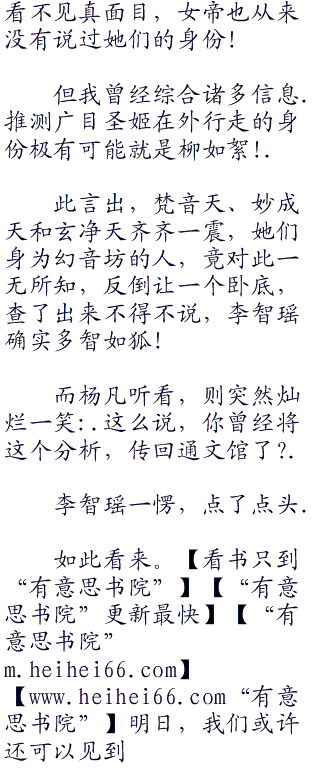 看不见真面目，女帝也从来
没有说过她们的身份！
但我曾经综合诸多信息.
推测广目圣姬在外行走的身
份极有可能就是柳如絮！.
此言出，梵音天、妙成
天和玄净天齐齐一震，她们
身为幻音坊的人，竟对此一
无所知，反倒让一个卧底，
查了出来不得不说，李智瑶
确实多智如狐！
而杨凡听看，则突然灿
烂一笑：.这么说，你曾经将
这个分析，传回通文馆了？.
李智瑶一愣，点了点头.
如此看来。【看书只到
“有意思书院”】【“有意
思书院”更新最快】【“有
意思书院”
m.heihei66.com】
【www.heihei66.com“有意
思书院”】明日，我们或许
还可以见到